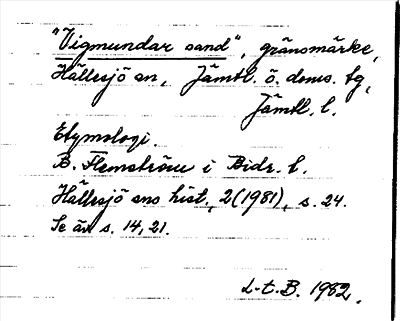 "Vigmundar sand", gränsmärke,
Hällesjö sn, Jämtl. ö. doms. tg,
Jämtl. l.
Etymologi.
B. Flemström i Bidr. t.
Hällesjö sns hist., 2(1981), s. 24.
Se äv s. 14, 21.
D-t. B. 1982.